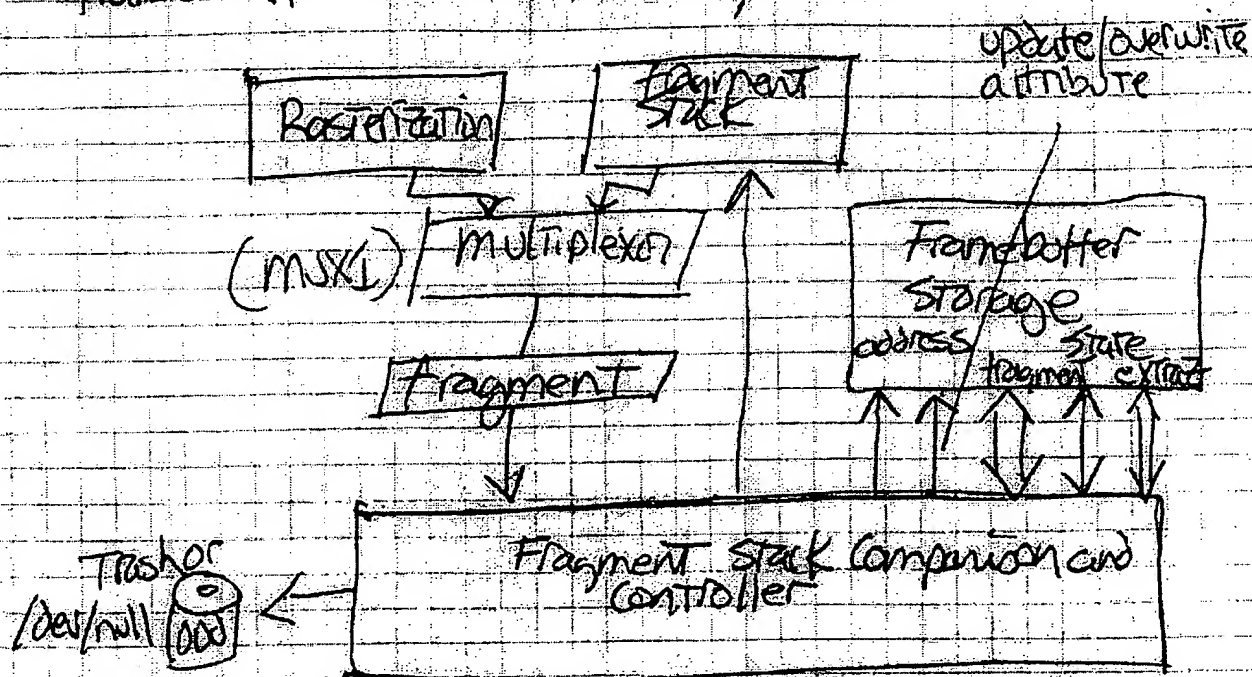 update/overwrite
attribute
Rasterization
fragment
stack
(MUX)
multiplexer
fragment
Framebuffer
Storage
address
fragment
state
extract
Fragment Stack Comparison and
Controller
Trash or
/dev/null